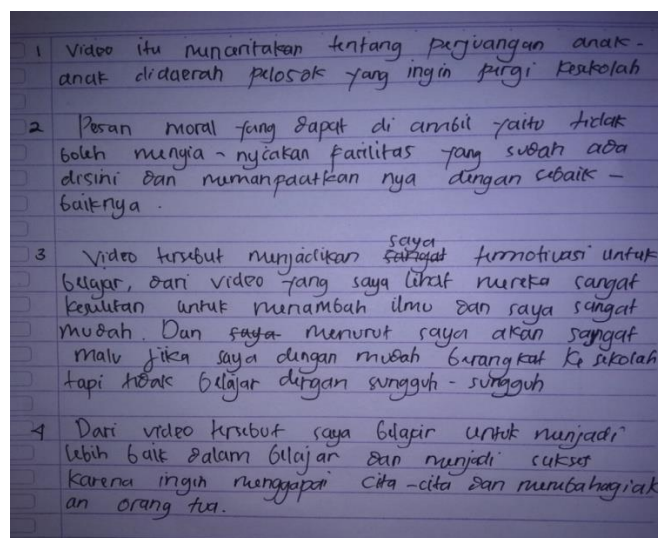 1 Video itu mencaritakan tentang perjuangan anak-
anak didaerah pelosok yang ingin pergi kesekolah
2 Pesan moral yang dapat di ambil yaitu tidak
boleh mengia-nyiakan fasilitas yang sudah ada
disini dan memanpaatkan nya dengan sebaik-
baiknya.
saya
3 Video tersebut menjadikan sangat termotivasi untuk
belajar, dari video yang saya lihat mereka sangat
kesulitan untuk menambah ilmu dan saya sangat
mudah. Dan saya menurut saya akan sangat
malu jika saya dengan mudah berangkat ke sekolah
tapi tidak belajar dengan sungguh-sungguh
4 Dari video tersebut saya belajar untuk menjadi
lebih baik dalam belajar dan menjadi sukses
karena ingin menggapai cita-cita dan membahagiak
an orang tua.